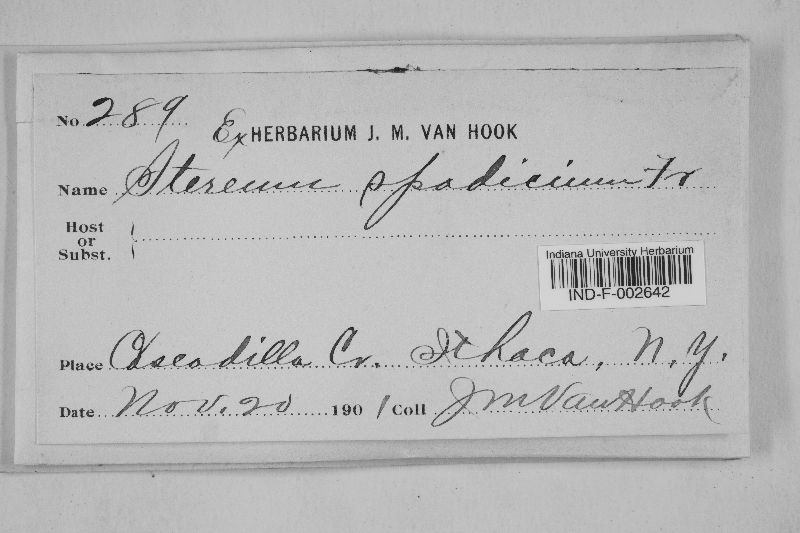 No. 289
Ex HERBARIUM J. M. VAN HOOK
Name Stereum spadicium Fr
Host
or
Subst.
Indiana University Herbarium
IND-F-002642
Place Cascadilla Cr. Ithaca, N.Y.
Date Nov. 20 1901 Coll J M Van Hook